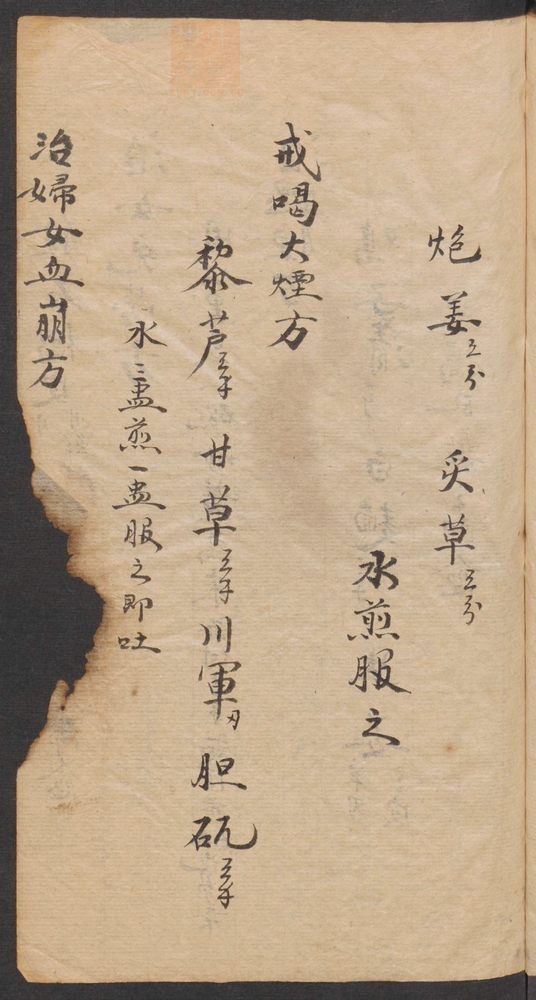 炮姜五分 炙草五分
水煎服之
戒喝大煙方
藜芦三钱 甘草三钱 川軍 胆矾三钱
水三盅煎一盅服之即吐
治婦女血崩方